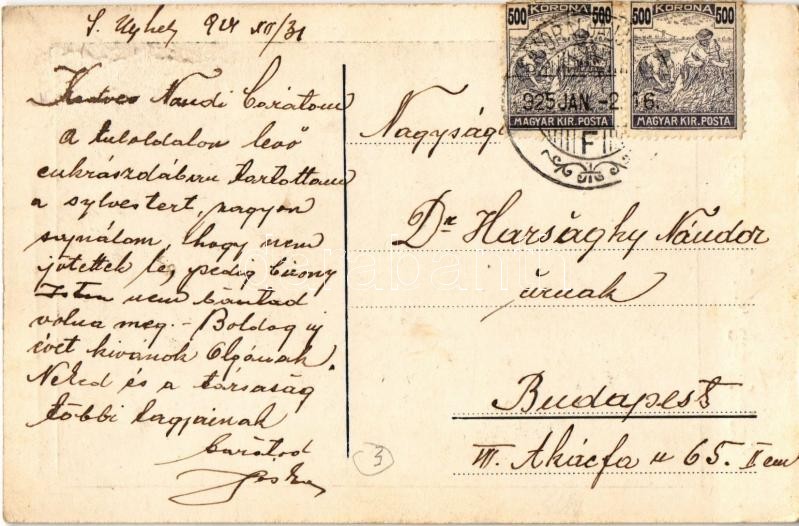 S. Ujhely 924 XII/31
Kedves Nandi barátom
A tuloldalon levő
cukrászdában tartottam
a sylvestert, nagyon
sajnálom, hogy nem
jöttettek le, pedig bizony
Isten nem bántad
volna meg. - Boldog uj
évet kivánok Olgának,
Neked és a társaság
többi tagjainak
barátod
500 KORONA 500
MAGYAR KIR. POSTA
500 KORONA 500
MAGYAR KIR. POSTA
925 JAN. -2. 16.
F
Nagyságu
Dr Harsághy Nándor
úrnak
Budapest
VII. Akácfa u 65. II em
3